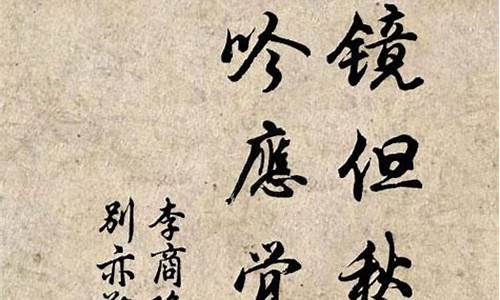 镜但愁
吟應觉
李商
别亦